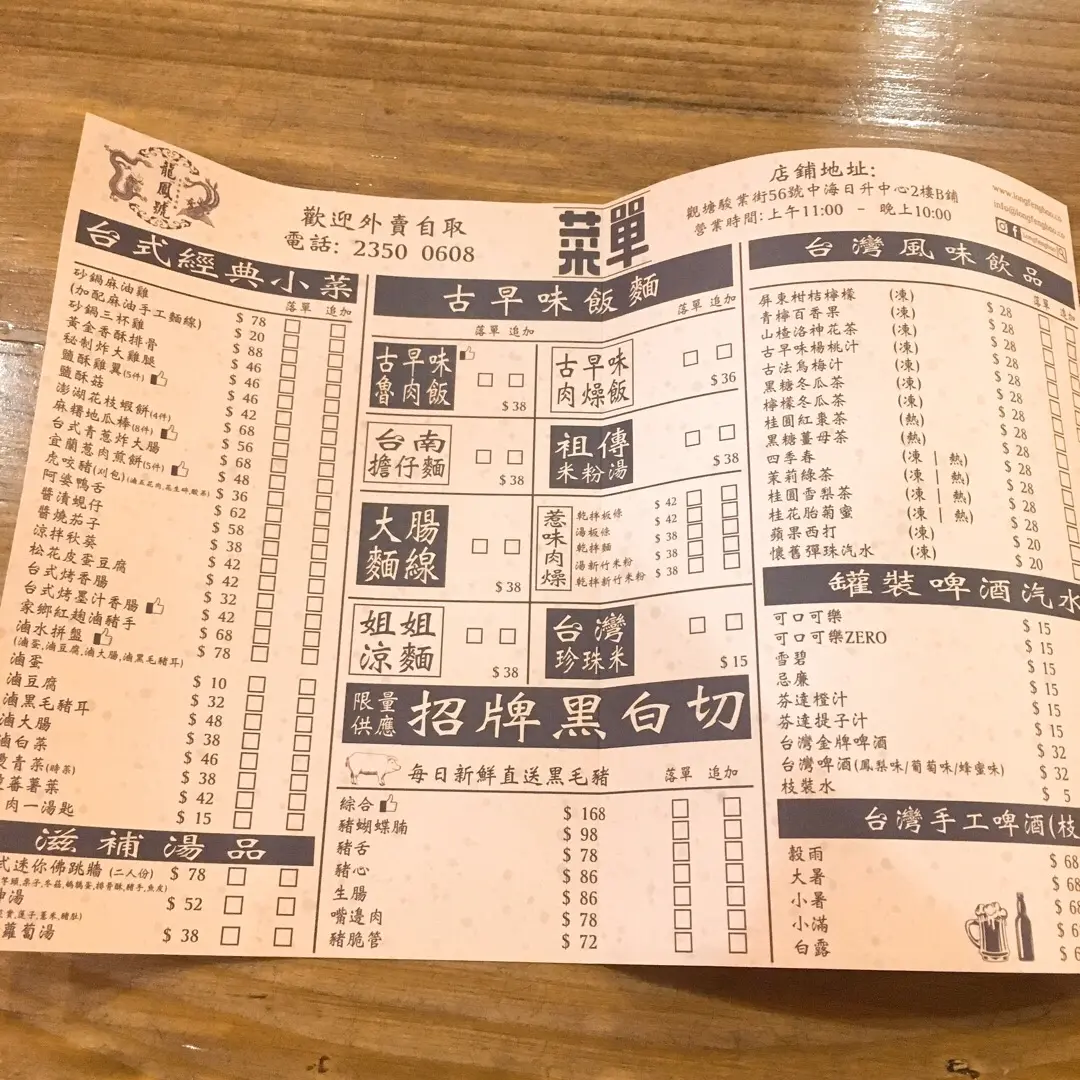 龍鳳號
歡迎外賣自取
電話: 2350 0608
菜單
店鋪地址:
觀塘駿業街56號中海日升中心2樓B鋪
營業時間:上午11:00 - 晚上10:00
台式經典小菜
落單 追加
砂鍋麻油雞 $ 78
(加配麻油手工麵線) $ 20
砂鍋三杯雞 $ 88
黃金香酥排骨 $ 46
秘制炸大雞腿 $ 46
鹽酥雞翼(5件) $ 46
鹽酥菇 $ 42
澎湖花枝蝦餅(4件) $ 68
麻糬地瓜棒(8件) $ 56
台式青蔥炸大腸 $ 68
宜蘭蔥肉煎餅(5件) $ 48
虎咬豬(刈包)(滷五花肉,花生碎,酸菜) $ 36
阿婆鴨舌 $ 62
醬漬蜆仔 $ 58
醬燒茄子 $ 38
涼拌秋葵 $ 42
松花皮蛋豆腐 $ 42
台式烤香腸 $ 32
台式烤墨汁香腸 $ 42
家鄉紅麴滷豬手 $ 68
滷水拼盤 $ 78
(滷蛋,滷豆腐,滷大腸,滷黑毛豬耳)
滷蛋 $ 10
滷豆腐 $ 32
滷黑毛豬耳 $ 48
滷大腸 $ 38
滷白菜 $ 46
青菜(時菜) $ 38
蕃薯菜 $ 42
肉一湯匙 $ 15
滋補湯品
式迷你佛跳牆(二人份) $ 78
湯 $ 52
蘿蔔湯 $ 38
古早味飯麵
落單 追加
落單 追加
古早味魯肉飯 $ 38
古早味肉燥飯 $ 36
台南擔仔麵 $ 38
祖傳米粉湯 $ 38
大腸麵線 $ 38
惹味肉燥
乾拌板條 $ 42
湯板條 $ 42
乾拌麵 $ 38
湯新竹米粉 $ 38
乾拌新竹米粉 $ 38
姐姐涼麵 $ 38
台灣珍珠米 $ 15
限量供應 招牌黑白切
每日新鮮直送黑毛豬 落單 追加
綜合 $ 168
豬蝴蝶腩 $ 98
豬舌 $ 78
豬心 $ 86
生腸 $ 86
嘴邊肉 $ 78
豬脆管 $ 72
台灣風味飲品
落單
屏東柑桔檸檬 (凍) $ 28
青檸百香果 (凍) $ 28
山楂洛神花茶 (凍) $ 28
古早味楊桃汁 (凍) $ 28
古法烏梅汁 (凍) $ 28
黑糖冬瓜茶 (凍) $ 28
檸檬冬瓜茶 (凍) $ 28
桂圓紅棗茶 (熱) $ 28
黑糖薑母茶 (熱) $ 28
四季春 (凍 | 熱) $ 28
茉莉綠茶 (凍 | 熱) $ 28
桂圓雪梨茶 (凍 | 熱) $ 28
桂花胎菊蜜 (凍 | 熱) $ 28
蘋果西打 (凍) $ 20
懷舊彈珠汽水 (凍) $ 20
罐裝啤酒汽水
可口可樂 $ 15
可口可樂ZERO $ 15
雪碧 $ 15
忌廉 $ 15
芬達橙汁 $ 15
芬達提子汁 $ 15
台灣金牌啤酒 $ 32
台灣啤酒(鳳梨味/葡萄味/蜂蜜味) $ 32
枝裝水 $ 5
台灣手工啤酒(枝
穀雨 $ 68
大暑 $ 68
小暑 $ 68
小滿 $ 6
白露 $ 6